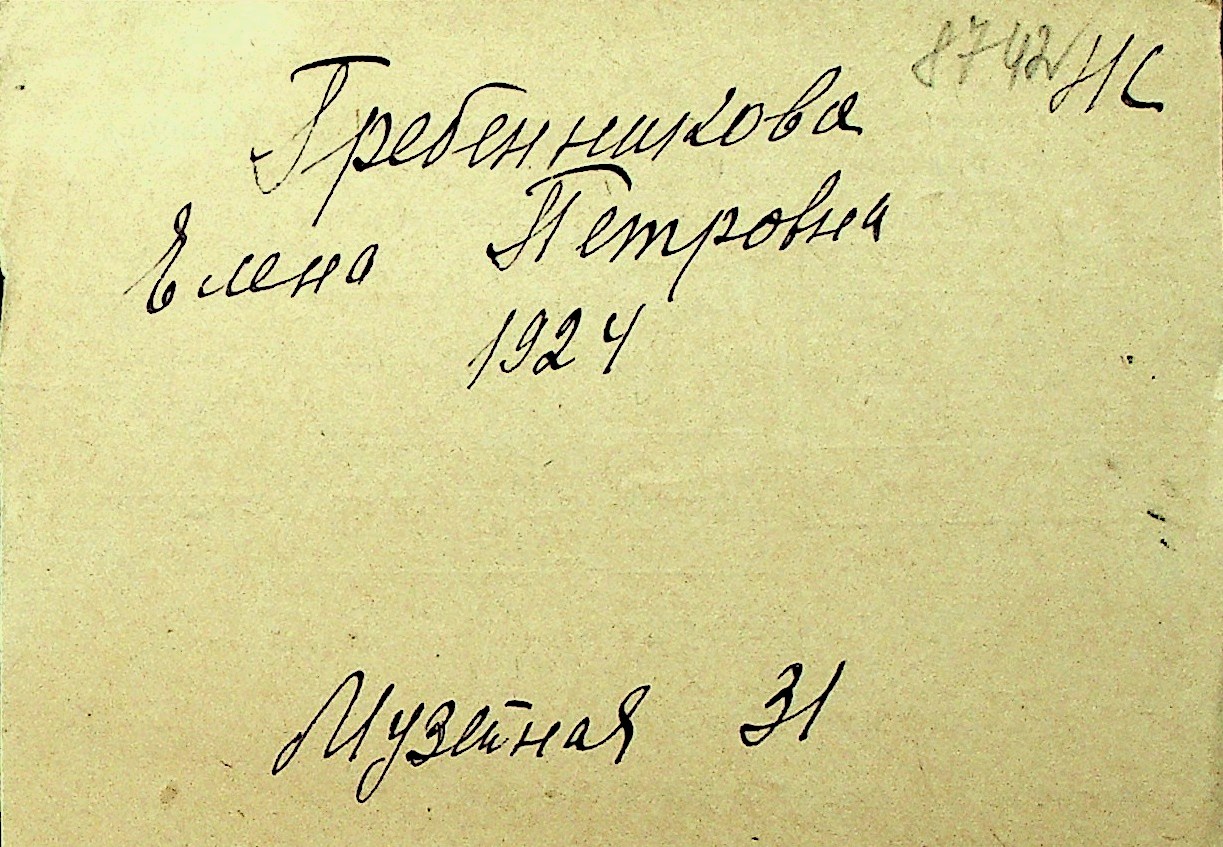 8742 НС
Гребенникова
Елена Петровна
1924
Музейная 31